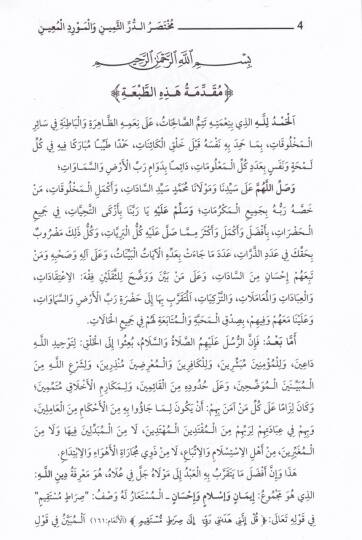 4 مُخْتَصَرُ الدُّرِّ الثَّمِينِ وَالْمَوْرِدِ الْمُعِينِ
بِسْمِ اللَّهِ الرَّحْمَنِ الرَّحِيمِ
﴿مُقَدِّمَةُ هَذِهِ الطَّبْعَةِ﴾
الْحَمْدُ لِلَّهِ الذِي بِنِعْمَتِهِ تَتِمُّ الصَّالِحَاتُ، عَلَى نِعَمِهِ الظَّاهِرَةِ وَالْبَاطِنَةِ فِي سَائِرِ
الْـمَخْلُوقَاتِ، بِمَا حَمِدَ بِهِ نَفْسَهُ قَبْلَ خَلْقِ الْكَائِنَاتِ، حَمْدًا طَيِّبًا مُبَارَكًا فِيهِ فِي كُلِّ
لَمْحَةٍ وَنَفَسٍ بِعَدَدِ كُلِّ الْـمَعْلُومَاتِ، دَائِمًـا بِدَوَامِ رَبِّ الْأَرْضِ وَالسَّمَاوَاتِ؛
وَصَلِّ اللَّهُمَّ عَلَى سَيِّدِنَا وَمَوْلَانَا مُحَمَّدٍ سَيِّدِ السَّادَاتِ، وَأَكْمَلِ الْـمَخْلُوقَاتِ، مَنْ
خَصَّهُ رَبُّهُ بِجَمِيعِ الْـمَكْرُمَاتِ؛ وَسَلِّمْ عَلَيْهِ يَا رَبَّنَا بِأَزْكَى التَّحِيَّاتِ، فِي جَمِيعِ
الْـحَضَرَاتِ، بِأَفْضَلَ وَأَكْمَلَ وَأَكْثَرَ مِـمَّا صَلَّى عَلَيْهِ كُلُّ الْبَرِيَّاتِ، وَكُلُّ ذَلِكَ مَضْرُوبٌ
بِحَقِّكَ فِي عَدَدِ الذَّرَّاتِ، عَدَدَ مَا جَاءَتْ بِعَدِّهِ الْآيَاتُ الْبَيِّنَاتُ، وَعَلَى آلِهِ وَصَحْبِهِ وَمَنْ
تَبِعَهُمْ بِإِحْسَانٍ مِنَ السَّادَاتِ، وَعَلَى مَنْ بَيَّنَ وَوَضَّحَ لِلثَّقَلَيْنِ فِقْهَ: الِاعْتِقَادَاتِ،
وَالْعِبَادَاتِ وَالْمُعَامَلَاتِ، وَالتَّزْكِيَاتِ، الْمُتَقَرَّبِ بِهَا إِلَى حَضْرَةِ رَبِّ الْأَرْضِ وَالسَّمَاوَاتِ،
وَعَلَيْنَا مَعَهُمْ وَفِيهِمْ، بِصِدْقِ الْـمَحَبَّةِ وَالْمُتَابَعَةِ لَهُمْ فِي جَمِيعِ الْحَالَاتِ.
أَمَّا بَعْـدُ: فَإِنَّ الرُّسُلَ عَلَيْهِمُ الصَّلَاةُ وَالسَّلَامُ، بُعِثُوا إِلَى الْخَلْقِ: لِتَوْحِيدِ اللَّـهِ
دَاعِينَ، وَلِلْمُؤْمِنِينَ مُبَشِّرِينَ، وَلِلْكَافِرِينَ وَالْـمُعْرِضِينَ مُنْذِرِينَ، وَلِشَرْعِ اللَّـهِ مِنَ
الْـمُبَيِّنِينَ الْـمُوَضِّحِينَ، وَعَلَى حُدُودِهِ مِنَ الْقَائِمِينَ، وَلِمَكَارِمِ الْأَخْلَاقِ مُتَمِّمِينَ؛
وَكَانَ لِزَامًا عَلَى كُلِّ مَنْ آمَنَ بِهِمْ: أَنْ يَكُونَ لِـمَا جَاؤُوا بِهِ مِنَ الْأَحْكَامِ مِنَ الْعَامِلِينَ،
وَبِهِمْ فِي عِبَادَتِهِمْ لِرَبِّهِمْ مِنَ الْـمُقْتَدِينَ الْـمُهْتَدِينَ، لَا مِنَ الْـمُبَدِّلِينَ فِيهَا وَلَا مِنَ
الْـمُغَيِّرِينَ، مِنْ أَهْلِ الِاسْتِسْلَامِ وَالِاتِّبَاعِ، لَا مِنْ ذَوِي مُجَارَاةِ الْأَهْوَاءِ وَالِابْتِدَاعِ.
هَذَا وَإِنَّ أَفْضَلَ مَا يَتَقَرَّبُ بِهِ الْعَبْدُ إِلَى مَوْلَاهُ جَلَّ فِي عُلَاهُ، هُوَ مَعْرِفَةُ دِينِ اللَّـهِ:
الَّذِي هُوَ مَجْمُوعُ: إِيمَانٍ وَإِسْلَامٍ وَإِحْسَانٍ ـ الْـمُسْتَعَارُ لَهُ وَصْفُ: "صِرَاطٍ مُسْتَقِيمٍ"
فِي قَوْلِهِ تَعَالَى: ﴿قُلْ إِنَّنِي هَدَانِي رَبِّي إِلَى صِرَاطٍ مُسْتَقِيمٍ﴾ (الأنعام: ١٦١) الْـمُبَيَّنُ فِي قَوْلِ